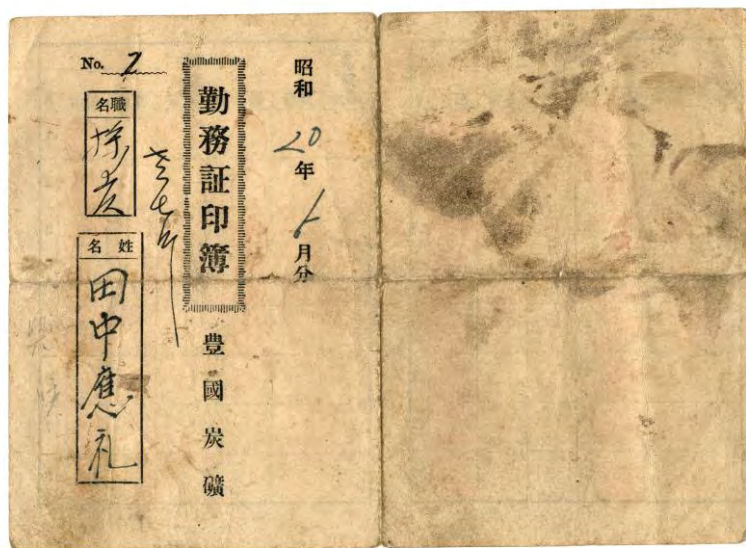 昭和20年6月分
勤務証印簿 豊國炭礦
No. 7
職名
採炭
姓名
田中應礼